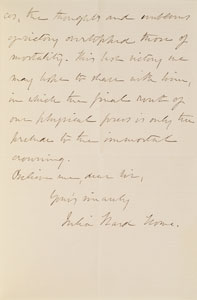 us, the thoughts and emblems
of victory overtopped those of
mortality. This last victory we
may hope to share with him,
in which the final rout of
our physical forces is only the
prelude to the immortal
crowning.
Believe me, dear Sir,
Yours sincerely
Julia Ward Howe.